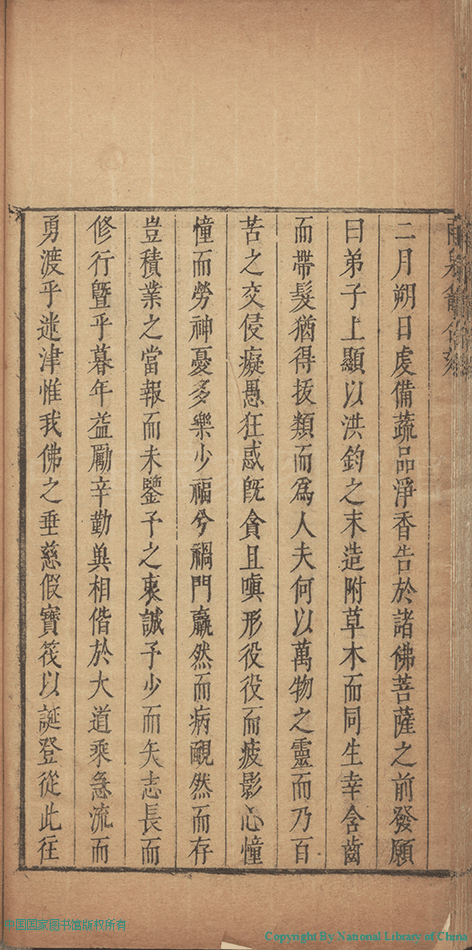 二月朔日虔備蔬品淨香告於諸佛菩薩之前發願
曰弟子上顯以洪鈞之末造附草木而同生幸含齒
而帶髮猶得抜類而為人夫何以萬物之靈而乃百
苦之交侵癡愚狂惑旣貪且嗔形役役而疲影心憧
憧而勞神憂多樂少福兮禍門羸然而病靦然而存
豈積業之當報而未鑒予之衷誠予少而矢志長而
修行曁乎暮年益勵辛勤與相偕於大道乘急流而
勇渡乎迷津惟我佛之垂慈假寶筏以誕登從此往
中国国家图书馆版权所有
Copyright By National Library of China